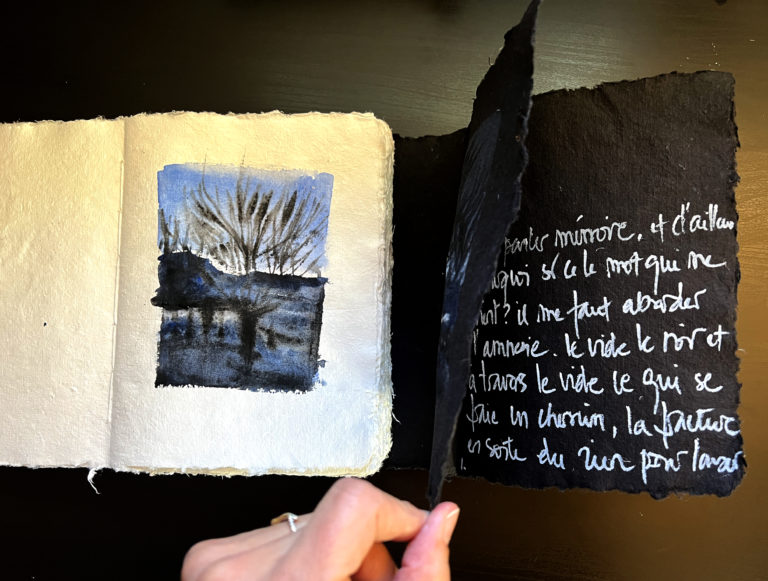 parler mirroire, et d'ailleurs
si ce le mot qui me
? il me faut aborder
l'amnesie. le vide le noir et
a travers le vide ce qui se
fraie un chemin, la facture
en sorte du rien pour